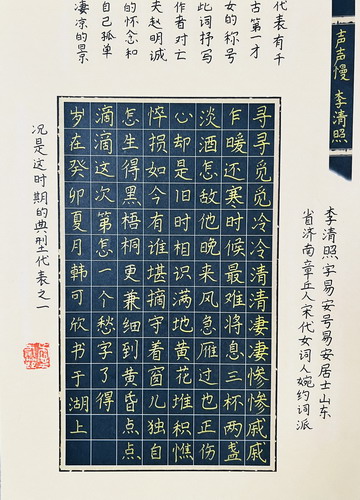 声声慢 李清照
李清照字易安号易安居士山东
省济南章丘人宋代女词人婉约词派
代表有千
古第一才
女的称号
此词抒写
作者对亡
夫赵明诚
的怀念和
自己孤单
凄凉的景
况是这时期的典型代表之一
寻寻觅觅冷冷清清凄凄惨惨戚戚
乍暖还寒时候最难将息三杯两盏
淡酒怎敌他晚来风急雁过也正伤
心却是旧时相识满地黄花堆积憔
悴损如今有谁堪摘守着窗儿独自
怎生得黑梧桐更兼细到黄昏点点
滴滴这次第怎一个愁字了得
岁在癸卯夏月韩可欣书于湖上